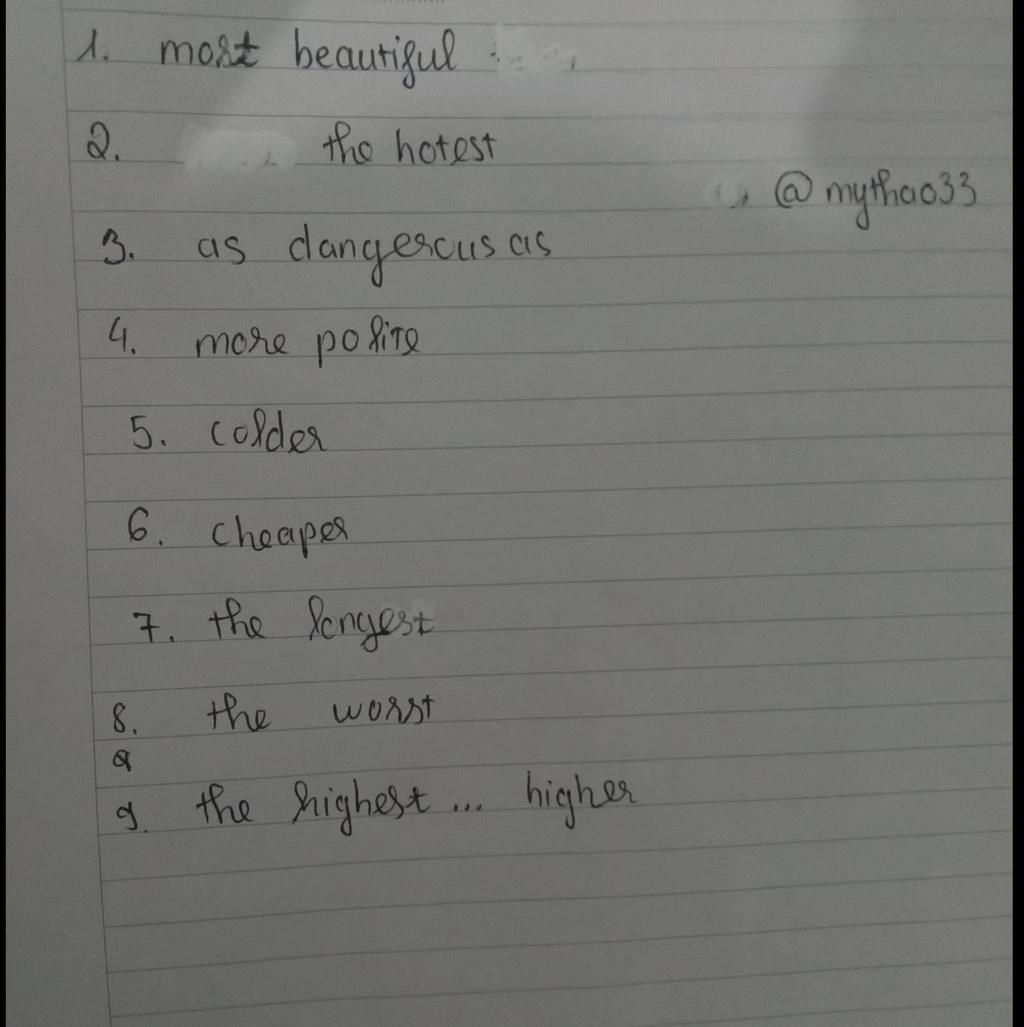 1. most beautiful
2. the hotest
@mythao33
3. as dangerous as
4. more polite
5. colder
6. cheaper
7. the longest
8. the worst
9
9. the highest ... higher